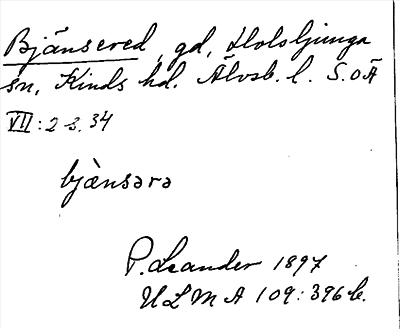 Bjänsered, gd, Holsljunga
sn, Kinds hd. Älvsb. l. S.O.Ä
VII: 2 s. 34
bjæ̀nsərə
P. Leander 1897
ULMA 109:396 b.